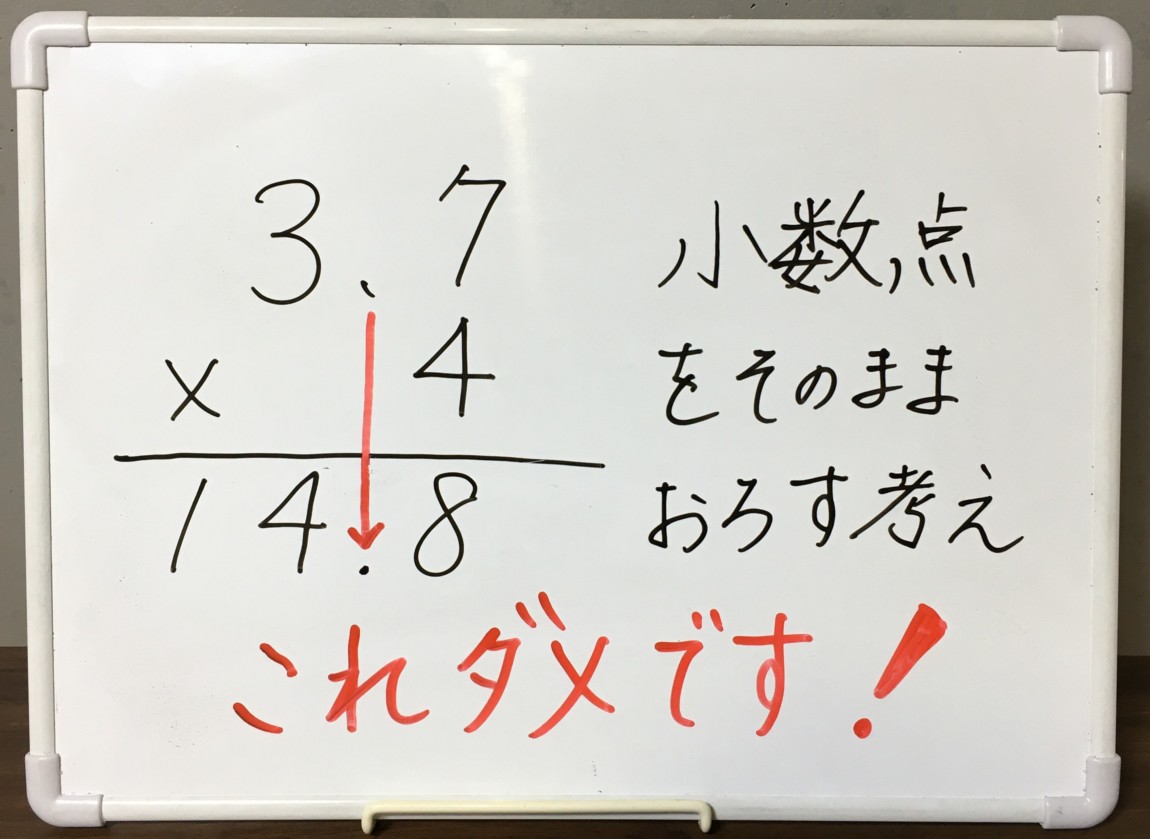 3.7
× 4
14.8
小数点
をそのまま
おろす考え
これダメです!